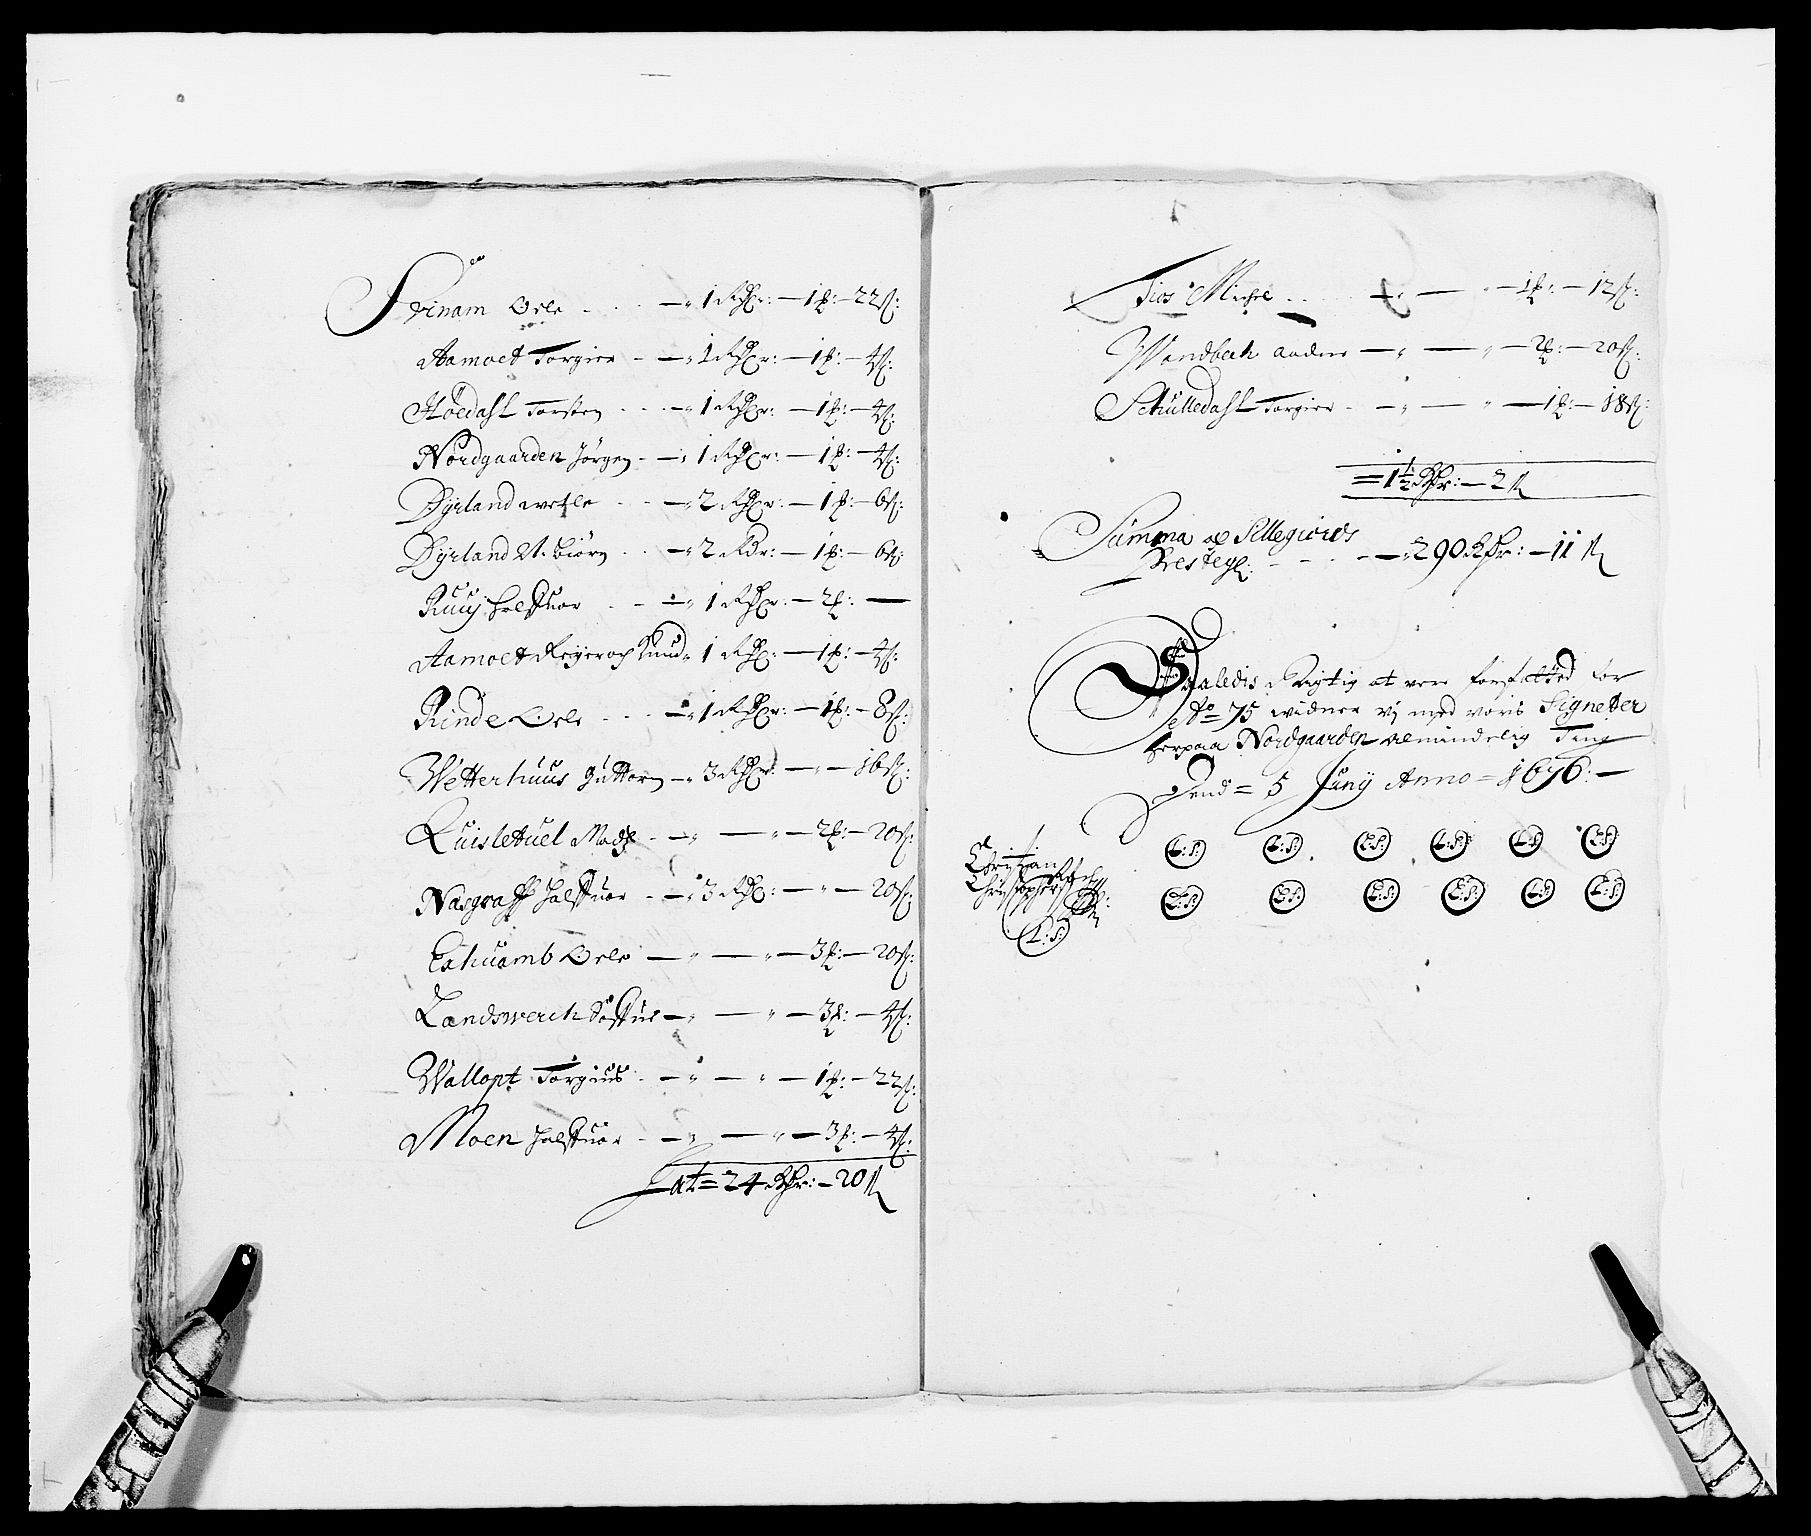 Svinam Orle . . . — „ 1 Rdr: — 1 ₰: — 22 ß:
Aamoet Torgier - — „ 1 Rdr: — 1 ₰: — 4 ß:
Höedahl Torsten . . . — „ 1 Rdr: — 1 ₰: — 4 ß:
Nordgaarden Jörgen - — „ 1 Rdr: — 1 ₰: — 4 ß:
Dyrland wetle . . . — „ 2 Rdr: — 1 ₰: — 6 ß:
Dyrland N. biörn . . — „ 2 Rdr: — 1 ₰: — 6 ß:
Ruuj Halffuor . - — „ 1 Rdr: — 2 ₰: —
Aamoet Reijer och Knud „ 1 Rdr: — 1 ₰: — 4 ß:
Rinde Orle . . . — „ 1 Rdr: — 1 ₰: — 8 ß:
Wetterhuus Guttorm — „ 3 Rdr: — „ — 16 ß:
Quisletuel Madtz - — „ — „ — 2 ₰: — 20 ß:
Nasgraff Halffuor - — „ 3 Rdr: — „ — 20 ß:
Eahuamb Orle — „ — „ — 3 ₰: — 20 ß:
Landswerch — „ — „ — 3 ₰: — 4 ß:
Wallopt Torgius - — „ — „ — 1 ₰: — 22 ß:
Moen Halffuor - — „ — „ — 3 ₰: — 4 ß:
Lat = 24 Rdr: — 20 ß
Michel . . . — „ — „ — 1 ₰: — 12 ß:
Wandbech Anders — „ — „ — 2 ₰: — 20 ß:
Schulledahl Torgier - — „ — „ — 1 ₰: — 18 ß:
= 1½ Rdr: — 2 ß
Summa af Sillegiords
Prestegl: - - - — „ 290 Rdr: — 11 ß
Saaledis Rigtig at vere forfatted for
Ao = 75 widner vj med voris Signetter
herpaa Nordgaarden almindelig Ting
Dend = 5 Junij Anno = 1676: —
L:S: L:S: L:S: L:S: L:S: L:S:
Christian
Christophers
L:S: L:S: L:S: L:S: L:S: L:S:
L:S: